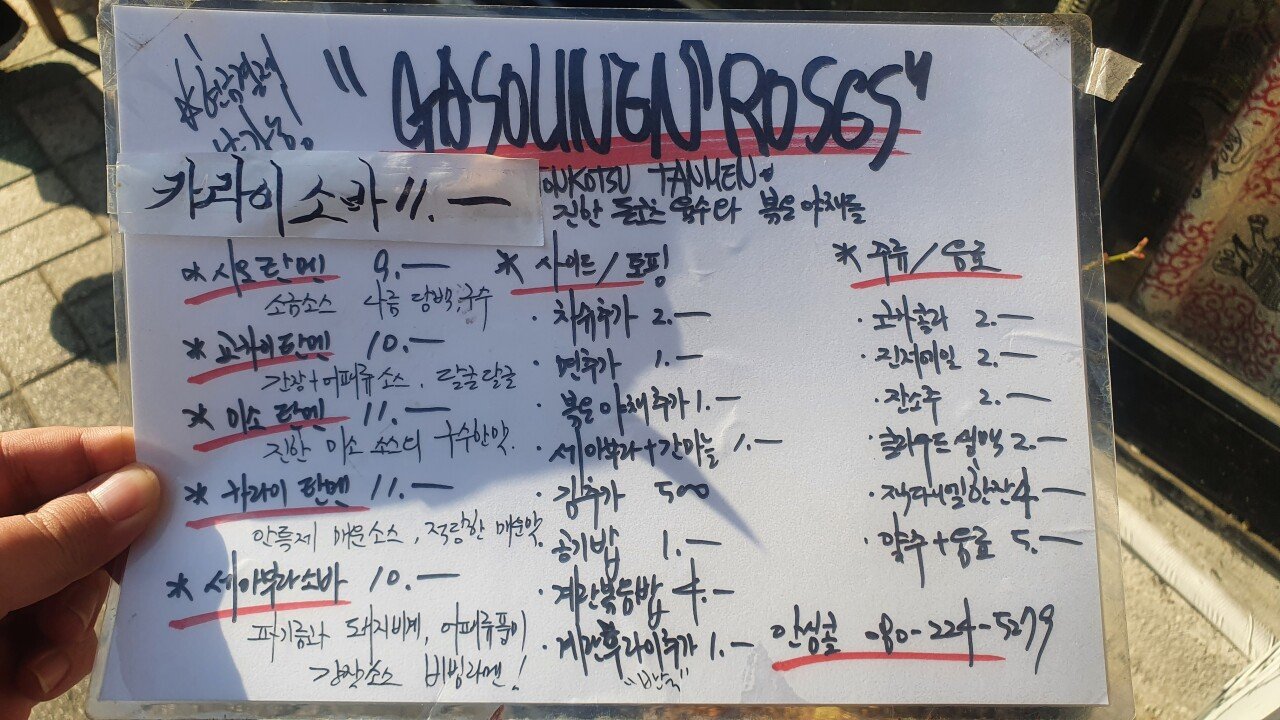 ※현금결제
만가능。
"GASOLINEN"ROSES"
카라이소바 11.—
ONKOTSU TANMEN。
진한 돈코츠 육수와 볶은야채들
* 시오탄멘 9.—
소금소스 나름 담백,구수
* 교카이탄멘 10.—
간장+어패류소스. 달글달글
* 미소탄멘 11.—
진한 미소 소스의 구수한맛.
* 카라이탄멘 11.—
안특제 매운소스, 적당한 매운맛.
* 세아부라소바 10.—
파기름과 돼지비계, 어패류풍미
간장소스 비빔라멘!
* 사이드/토핑
· 차슈추가 2.—
· 면추가 1.—
· 볶은야채추가 1.—
· 세아부라+간마늘 1.—
· 김추가 500
· 공기밥 1.—
· 계란볶음밥 4.—
· 계란후라이추가 1.—
"반숙"
* 주류/음료
· 코카콜라 2.—
· 진저에일 2.—
· 잔소주 2.—
· 클라우드생맥 2.—
· 잭다니엘한잔 4.—
· 약주+음료 5.—
안심콜 -80-224-5279